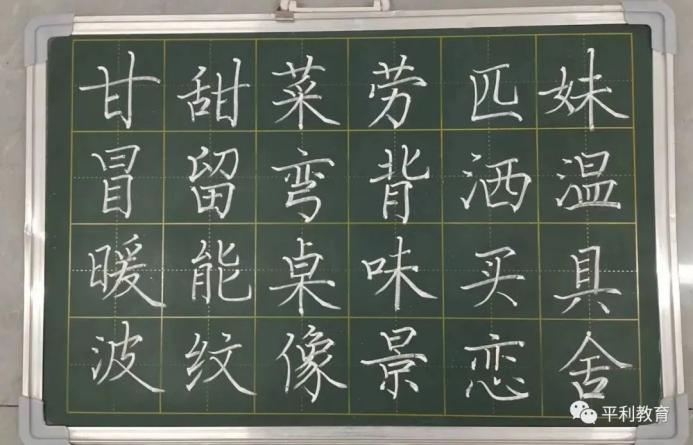 甘甜菜劳匹妹
冒留弯背洒温
暖能桌味买具
波纹像景恋舍
平利教育